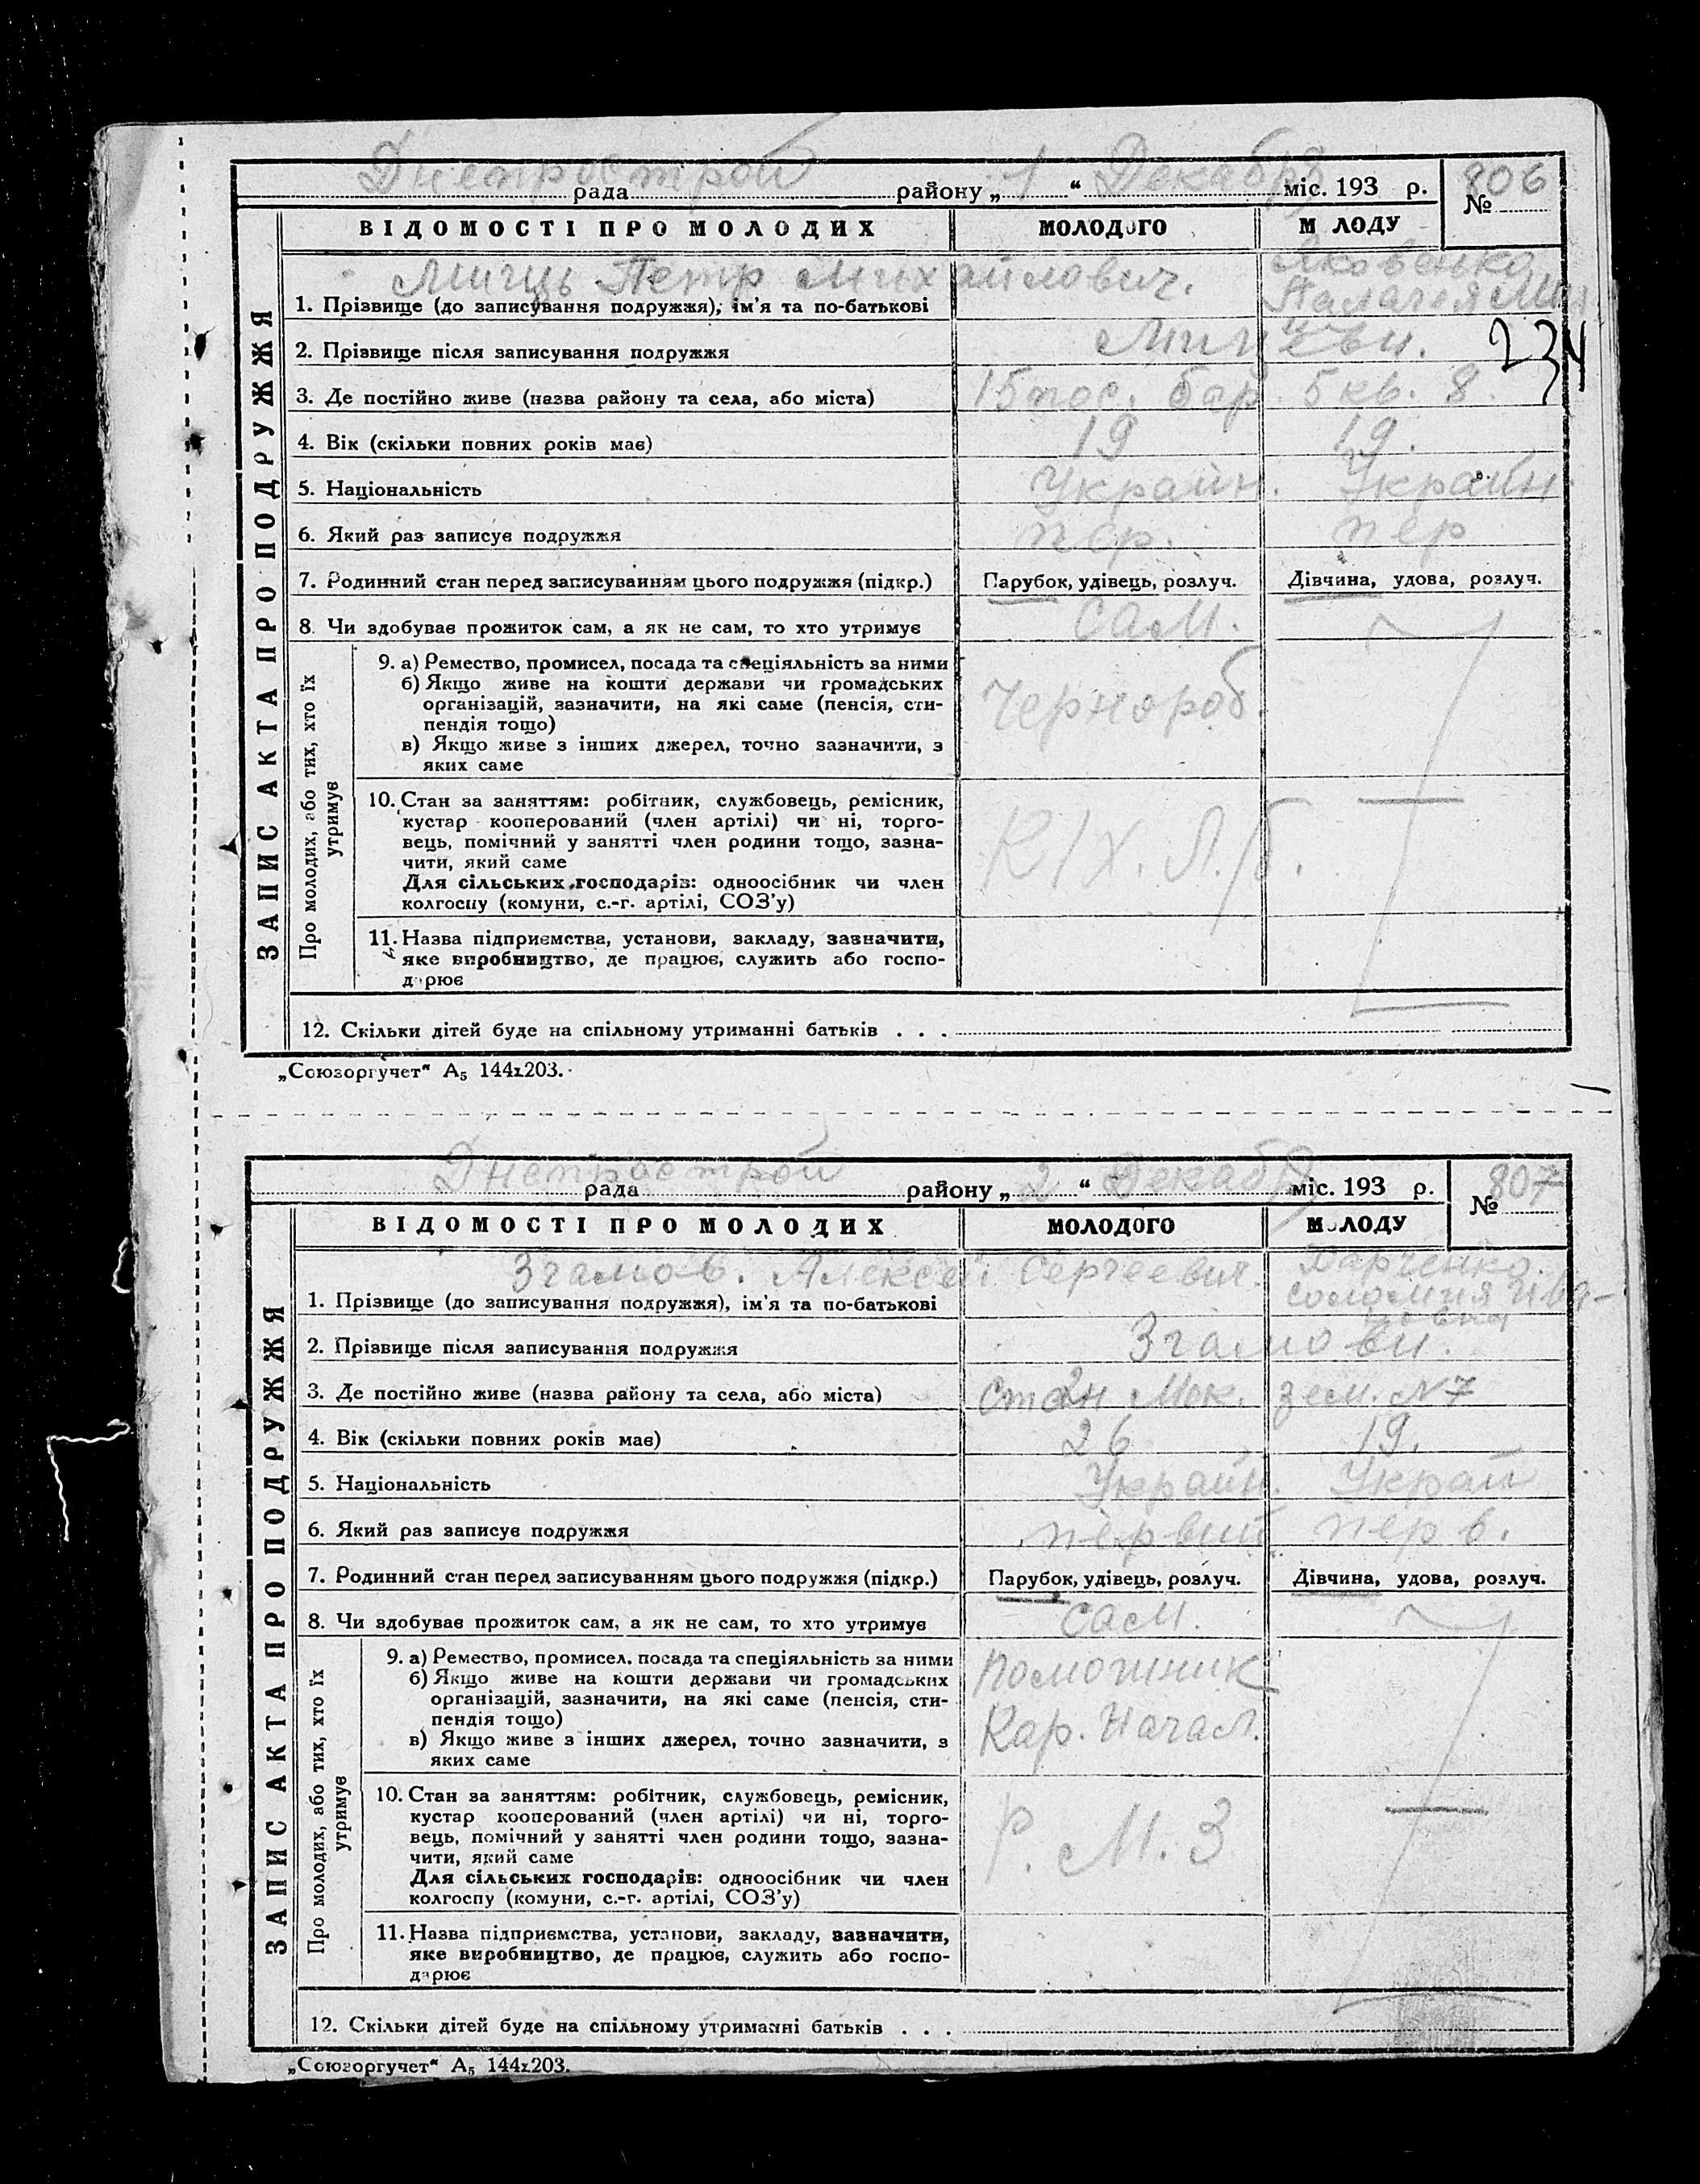 Днепрострой
рада району „ 1 “ Декабря міс. 193 р.
№ 806
ВІДОМОСТІ ПРО МОЛОДИХ МОЛОДОГО М ЛОДУ
ЗАПИС АКТА ПРО ПОДРУЖЖЯ
Петр Михайлович. Яковенко
1. Прізвище (до записування подружжя), ім'я та по-батькові
2. Прізвище після записування подружжя
234
3. Де постійно живе (назва району та села, або міста) 15 пос. бар. 5 кв. 8.
4. Вік (скільки повних років має) 19 19.
5. Національність Украін. Украін.
6. Який раз записує подружжя пер. пер
7. Родинний стан перед записуванням цього подружжя (підкр.) Парубок, удівець, розлуч. Дівчина, удова, розлуч.
8. Чи здобуває прожиток сам, а як не сам, то хто утримує сам.
Про молодих, або тих, хто їх
утримує
9. а) Ремество, промисел, посада та спеціяльність за ними
б) Якщо живе на кошти держави чи громадських
організацій, зазначити, на які саме (пенсія, сти-
пендія тощо)
Чернороб.
в) Якщо живе з інших джерел, точно зазначити, з
яких саме
10. Стан за заняттям: робітник, службовець, ремісник,
кустар кооперований (член артілі) чи ні, торго-
вець, помічний у занятті член родини тощо, зазна-
чити, який саме
Для сільських господарів: одноосібник чи член
колгоспу (комуни, с.-г. артілі, СОЗ'у)
11. Назва підприємства, установи, закладу, зазначити,
яке виробництво, де працює, служить або госпо-
д рює
12. Скільки дітей буде на спільному утриманні батьків . . .
„Союзоргучет“ А₅ 144х203.
Днепрострой
рада району „ 2 “ Декабря міс. 193 р.
№ 807
ВІДОМОСТІ ПРО МОЛОДИХ МОЛОДОГО МОЛОДУ
ЗАПИС АКТА ПРО ПОДРУЖЖЯ
Згамов. Алексей Сергеевич. Харченко.
соломия Ива-
новна
1. Прізвище (до записування подружжя), ім'я та по-батькові
2. Прізвище після записування подружжя Згамови.
3. Де постійно живе (назва району та села, або міста) стан Мок. зем. N 7
4. Вік (скільки повних років має) 26 19.
5. Національність Украін. Украй
6. Який раз записує подружжя первий перв.
7. Родинний стан перед записуванням цього подружжя (підкр.) Парубок, удівець, розлуч. Дівчина, удова, розлуч.
8. Чи здобуває прожиток сам, а як не сам, то хто утримує сам.
Про молодих, або тих, хто їх
утримує
9. а) Ремество, промисел, посада та спеціяльність за ними
б) Якщо живе на кошти держави чи громадських
організацій, зазначити, на які саме (пенсія, сти-
пендія тощо)
в) Якщо живе з інших джерел, точно зазначити, з
яких саме
помошник
Кар. Начал.
10. Стан за заняттям: робітник, службовець, ремісник,
кустар кооперований (член артілі) чи ні, торго-
вець, помічний у занятті член родини тощо, зазна-
чити, який саме
Для сільських господарів: одноосібник чи член
колгоспу (комуни, с.-г. артілі, СОЗ'у)
Р. М. З
11. Назва підприємства, установи, закладу, зазначити,
яке виробництво, де працює, служить або госпо-
дарює
12. Скільки дітей буде на спільному утриманні батьків . . .
„Союзоргучет“ А₅ 144х203.